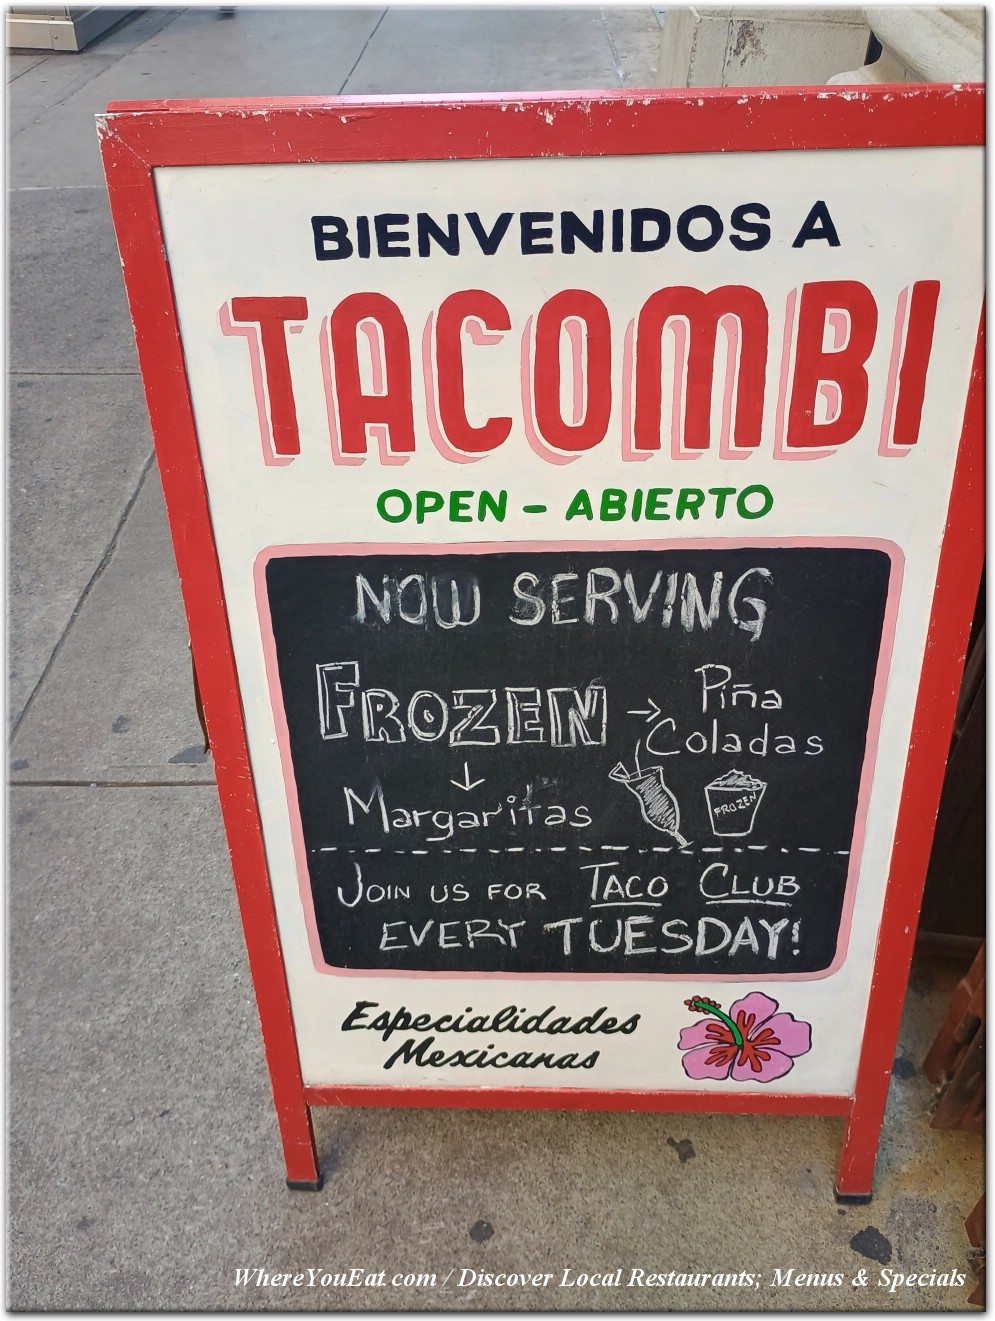 BIENVENIDOS A
TACOMBI
OPEN - ABIERTO
NOW SERVING
FROZEN → Piña
Coladas
↓
Margaritas
FROZEN
JOIN US FOR TACO CLUB
EVERY TUESDAY!
Especialidades
Mexicanas
WhereYouEat.com / Discover Local Restaurants; Menus & Specials